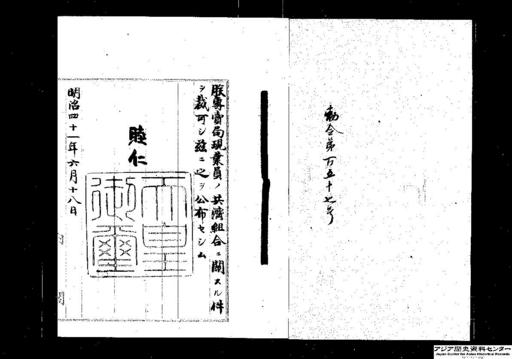 勅令第百五十七号
朕専売局現業員ノ共済組合ニ関スル件
ヲ裁可シ茲ニ之ヲ公布セシム
睦仁
天皇御璽
明治四十一年六月十八日
内閣
アジア歴史資料センター
Japan Center for Asian Historical Records